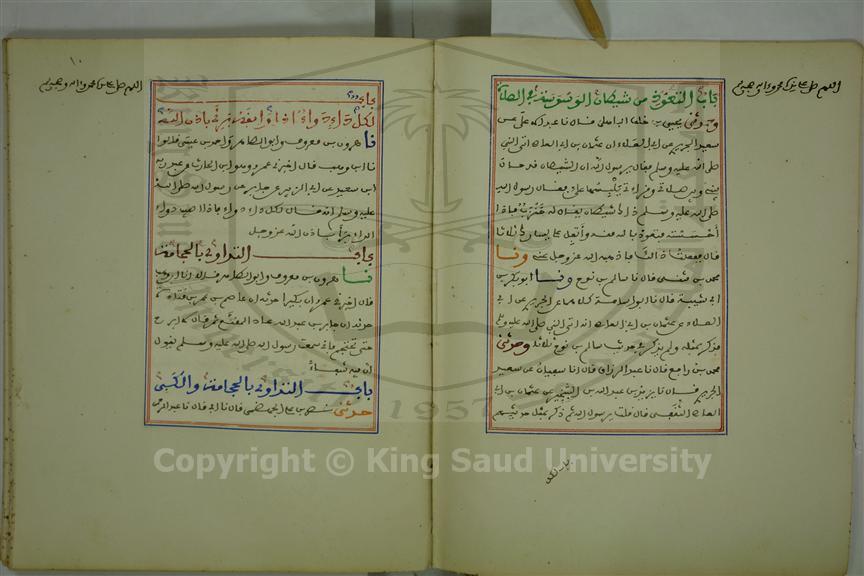 اللهم صل على سيدنا محمد وءاله وصحبه
باب التعوذ من شيطان الوسوسة في الصلاة
وحدثني يحيى بن خلف الباهلي قال نا عبد الاعلى عن
سعيد الجريري عن ابي العلاء ان عثمان بن ابي العاص اتى النبي
صلى الله عليه وسلم فقال يرسول الله ان الشيطان قد حال
بيني وبين صلاتي وقراءتي يلبسها علي فقال رسول الله
صلى الله عليه وسلم ذاك شيطان يقال له خنزب فاذا
احسسته فتعوذ بالله منه واتفل على يسارك ثلاثا
قال ففعلت ذلك فاذهبه الله عز وجل عني ونا
محمد بن مثنى قال نا سالم بن نوح ونا ابو بكر بن
ابي شيبة قال نا ابو اسامة كلاهما عن الجريري عن ابي
العلاء عن عثمان بن ابي العاص انه اتى النبي صلى الله عليه وسلم
فذكر بمثله ولم يذكر في حديث سالم بن نوح ثلاثا وحدثني
محمد بن رافع قال نا عبد الرزاق قال انا سفيان عن سعيد
الجريري قال نا يزيد بن عبد الله بن الشخير عن عثمان بن ابي
العاص الثقفي قال قلت يرسول الله ثم ذكر بمثل حديثهم
باب لكل
١٠
اللهم صل على سيدنا محمد وءاله وصحبه
باب
لكل داء دواء فاذا وافقه برئ باذن الله
نا هرون بن معروف وابو الطاهر واحمد بن عيسى قالوا
نا ابن وهب قال اخبرني عمرو وهو ابن الحارث عن عبد ربه
ابن سعيد عن ابي الزبير عن جابر عن رسول الله صلى الله
عليه وسلم انه قال لكل داء دواء فاذا اصيب دواء
الداء برأ باذن الله عز وجل
باب التداوي بالحجامة
نا هرون بن معروف وابو الطاهر قالا نا ابن وهب
قال اخبرني عمرو ان بكيرا حدثه ان عاصم بن عمر بن قتادة
حدثه ان جابر بن عبد الله عاد المقنع ثم قال لا ابرح
حتى تحتجم فاني سمعت رسول الله صلى الله عليه وسلم يقول
ان فيه شفاء
باب التداوي بالحجامة والكي
حدثني نصر بن علي الجهضمي قال نا ابي قال نا عبد الرحمن
Copyright © King Saud University
1957